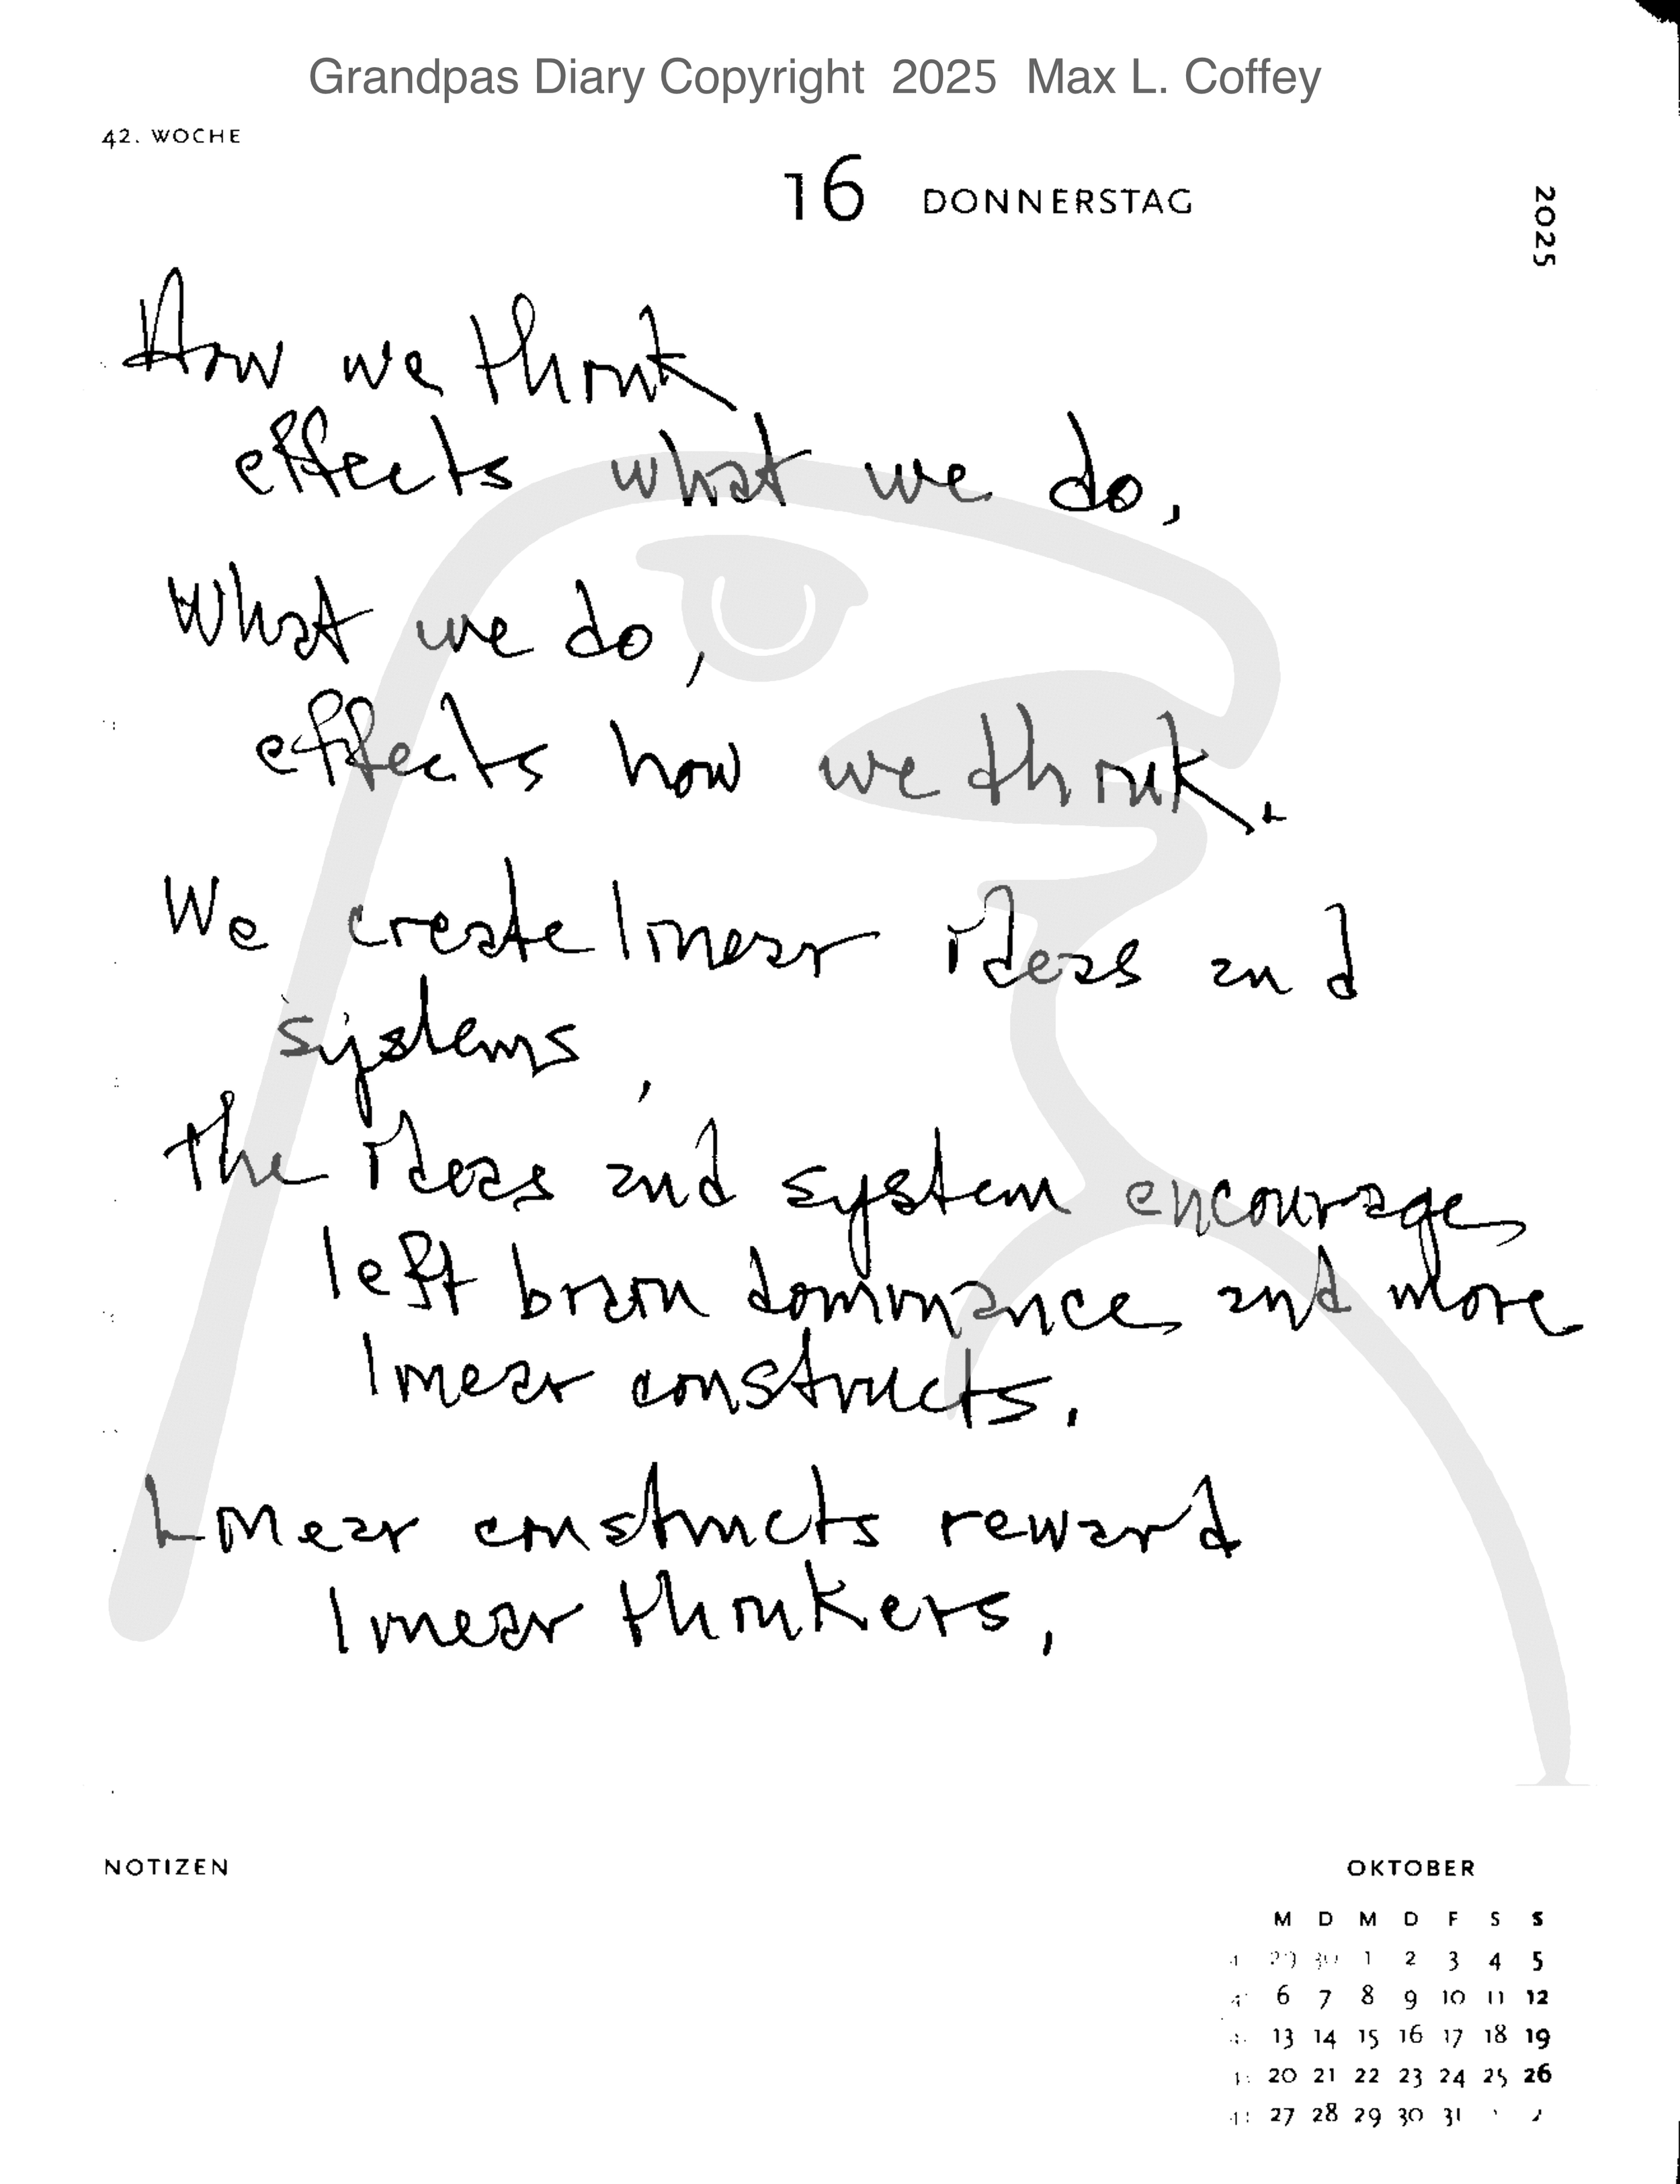 Grandpas Diary Copyright 2025 Max L. Coffey
42. WOCHE
16 DONNERSTAG
2025
How we think
effects what we do,
What we do,
effects how we think.
We create linear ideas and
systems,
the ideas and system encourage
left brain dominance and more
linear constructs.
Linear constructs reward
linear thinkers,
NOTIZEN
OKTOBER
M D M D F S S
29 30 1 2 3 4 5
6 7 8 9 10 11 12
13 14 15 16 17 18 19
20 21 22 23 24 25 26
27 28 29 30 31